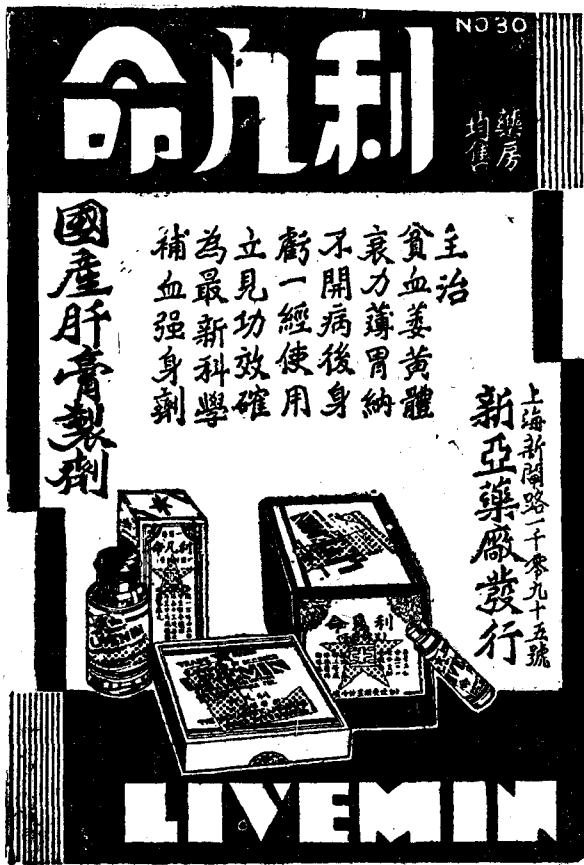 NO 30
利凡命
藥房
均售
主治
貧血萎黃體
衰力薄胃納
不開病後身
虧一經使用
立見功效確
為最新科學
補血强身劑
國產肝膏製劑
上海新閘路一千零九十五號
新亞藥廠發行
利凡命
LIVEMIN